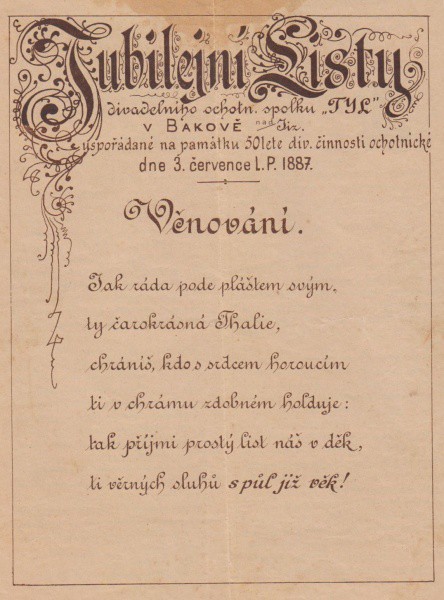 Jubilejní Listy
divadelního ochotn. spolku „TYL"
v BAKOVĚ nad Jiz.
uspořádané na památku 50leté div. činnosti ochotnické
dne 3. července L.P. 1887.
Věnování.
Jak ráda pode pláštem svým,
ty čarokrásná Thalie,
chráníš, kdo s srdcem horoucím
ti v chrámu zdobném holduje:
tak přijmi prostý list náš v děk,
ti věrných sluhů spůl již věk!